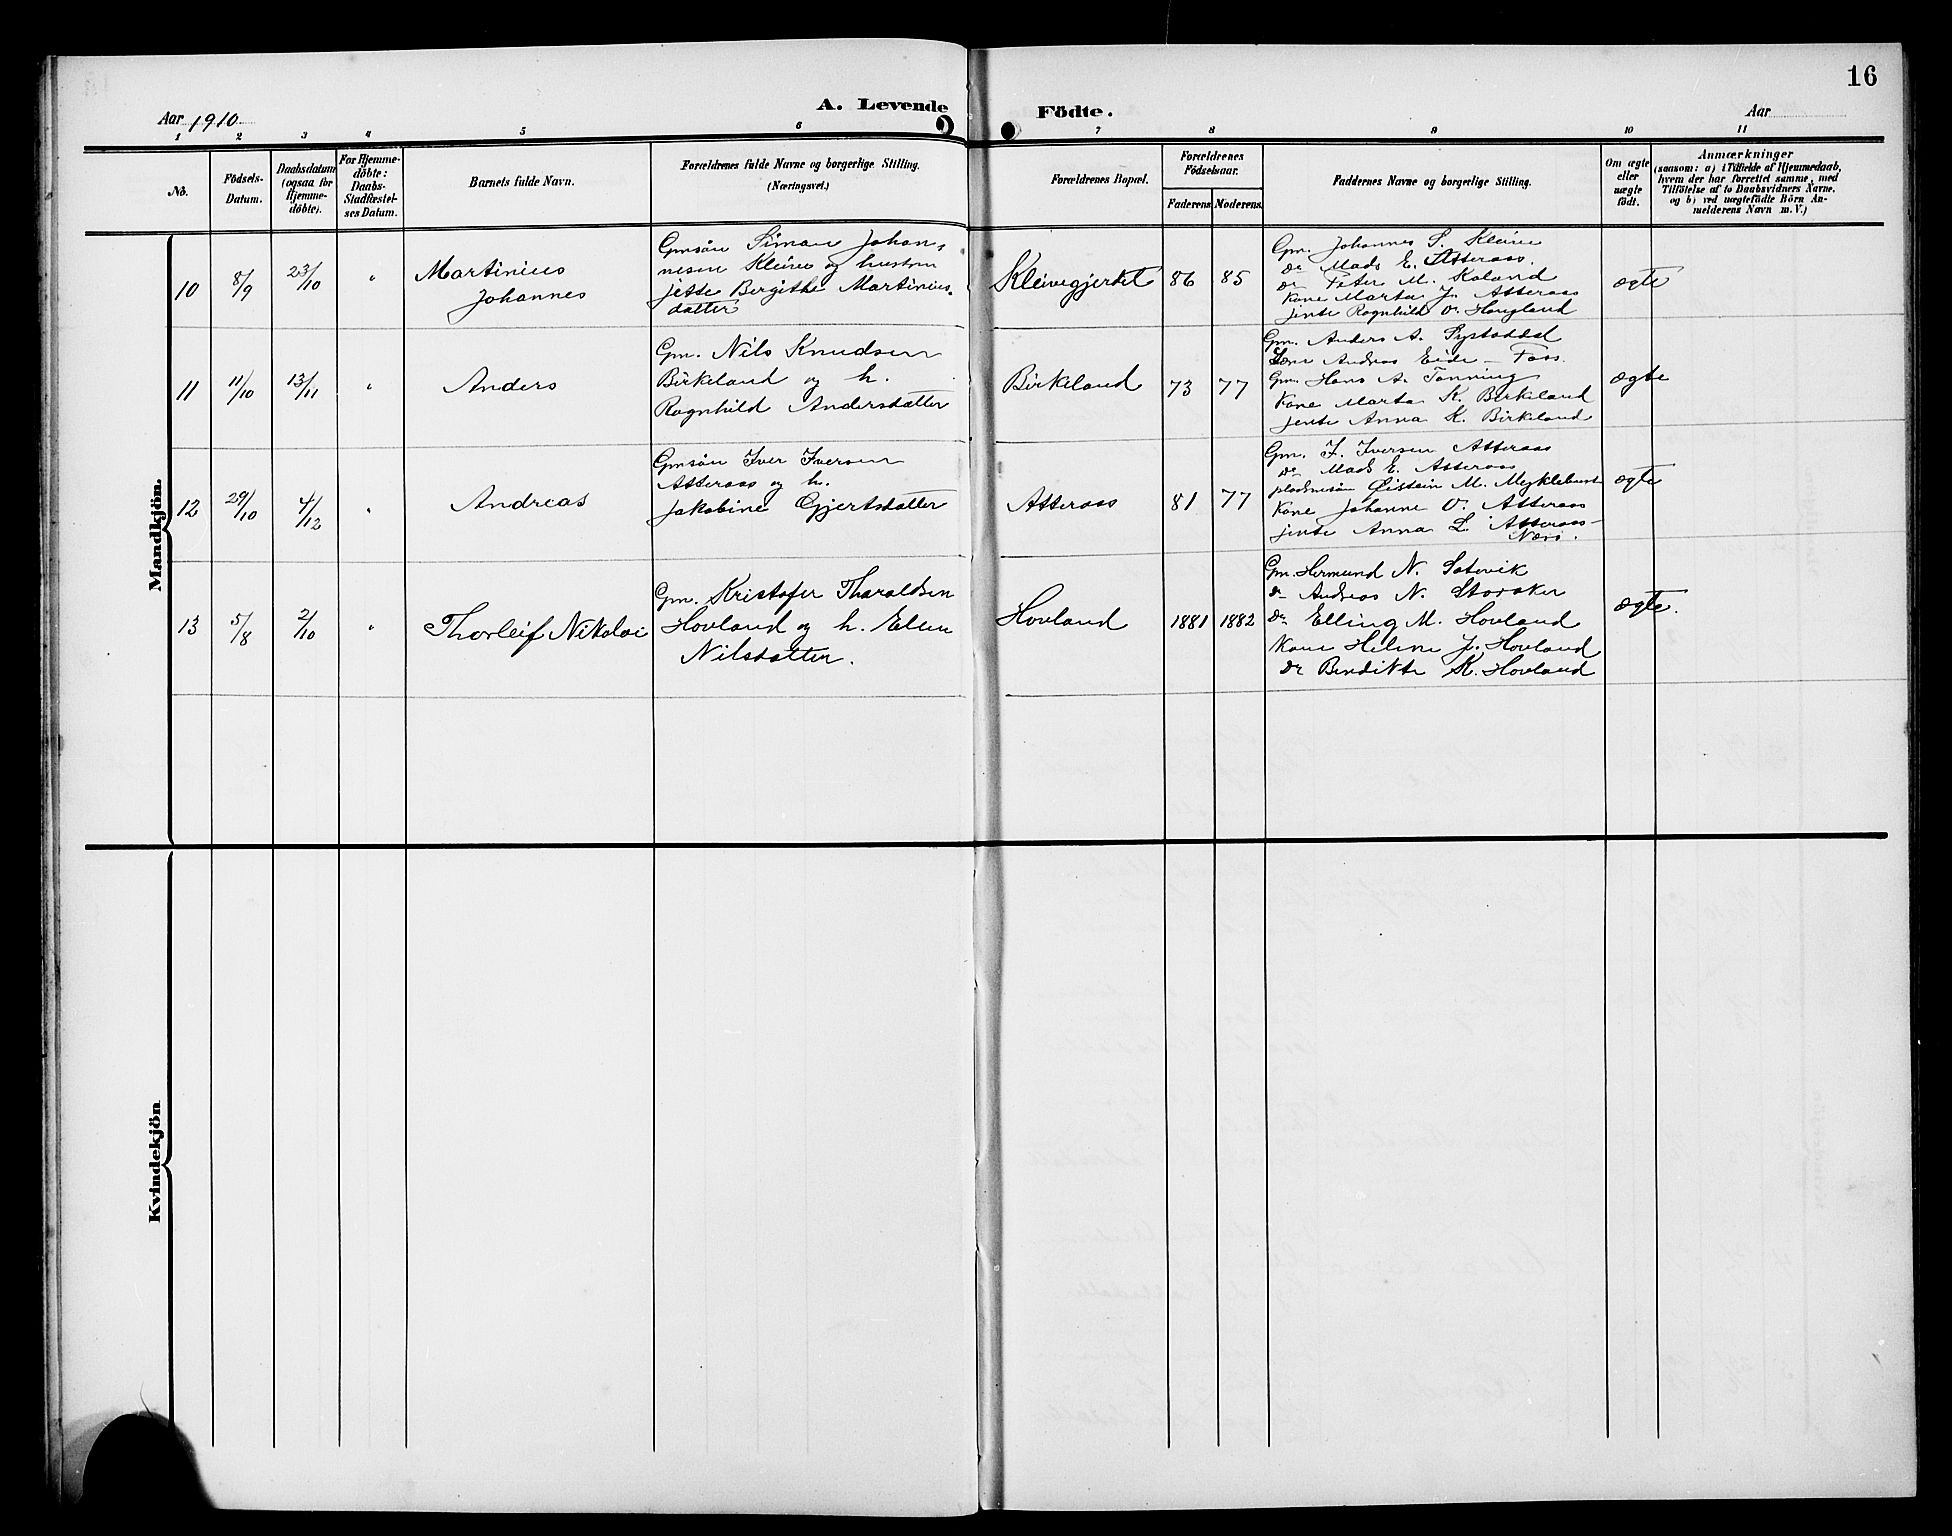 16
A. Levende Födte.
Aar 1910
Aar
1 2 3 4 5 6 7 8 9 10 11
No.
Födsels-
Datum.
Daabsdatum
(ogsaa for
Hjemme-
döbte).
For Hjemme-
döbte:
Daabs-
Stadfæstel-
ses Datum.
Barnets fulde Navn.
Forældrenes fulde Navne og borgerlige Stilling.
(Næringsvei.)
Forældrenes Bopæl.
Forældrenes
Födselsaar.
Faderens Moderens.
Faddernes Navne og borgerlige Stilling.
Om ægte
eller
uægte
födt.
Anmærkninger
(saasom: a) i Tilfælde af Hjemmedaab,
hvem der har forrettet samme, med
Tilföielse af to Daabsvidners Navne.
og b) ved uægtefödte Börn An-
melderens Navn m. V.)
Mandkjön.
10
8/9
23/10
"
Martinius
Johannes
Gmsön Simon Johan-
nesen Kleive og hustru
Jette Bergithe Martinius-
datter
Kleivegjerdet
86 85
Gm. Johannes S. Kleive
Do Mads E. Atteraas.
Do Peter M. Kaland
Kone Marta J. Atteraas
jente Ragnhild O. Haugland
ægte
11
11/10
13/11
"
Anders
Gm. Nils Knudsen
Birkeland og h.
Ragnhild Andersdatter
Birkeland
73 77
Gm. Anders A. Systaddal
Andreas Eide - Foss.
Gm. Hans A. Tonning
Kone Marta K. Birkeland
jente Anna K. Birkeland
ægte
12
29/10
4/12
"
Andreas
Gmsön Iver Iversen
Atteraas og h.
Jakobine Gjertsdatter
Atteraas
81 77
Gm. I. Iversen Atteraas
Do Mads E. Atteraas
pladsmsön Øistein M. Myklebust
Kone Johanne O. Atteraas
jente Anna L. Atteraas-
Næss.
ægte
13
5/8
2/10
"
Thorleif Nikolai
Gm. Kristofer Tharaldsen
Hovland og h. Ellen
Nilsdatter.
Hovland
1881 1882
Gm. Hermund N. Solevik
Do Andreas N. Storaker
Do Elling M. Hovland
Kone Helene J. Hovland
Do Bendikte K. Hovland
ægte.
Kvindekjön